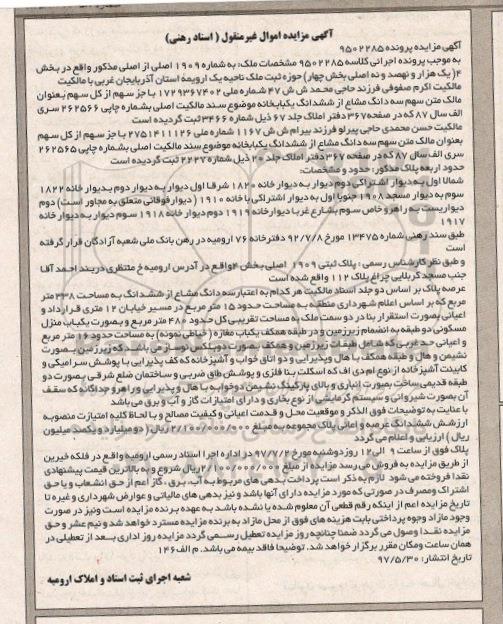 آگهی مزایده اموال غیرمنقول ( اسناد رهنی)
آگهی مزایده پرونده ۹۵۰۲۲۸۵
به موجب پرونده اجرائی کلاسه ۹۵۰۲۲۸۵ مشخصات ملک: به شماره ۱۹۰۹ اصلی از اصلی مذکور واقع در بخش
۴( یک هزار و نهصد و نه اصلی بخش چهار) حوزه ثبت ملک ناحیه یک ارومیه استان آذربایجان غربی با مالکیت
مالکیت اکرم صفوفی فرزند حاجی محمد ش ش ۴۷ شماره ملی ۱۷۲۹۳۶۷۴۰۲ با جز سهم از کل سهم بعنوان
مالک متن سهم سه دانگ مشاع از ششدانگ یکبابخانه موضوع سند مالکیت اصلی بشماره چاپی ۲۶۲۵۶۶ سری
الف سال ۸۷ که در صفحه ۳۶۷ دفتر املاک جلد ۶۷ ذیل شماره ۳۴۶۶ ثبت گردیده است
مالکیت حسن محمدی حاجی پیرلو فرزند بیرام ش ش ۱۱۶۷ شماره ملی ۲۷۵۱۴۱۱۱۲۶ با جز سهم از کل سهم
بعنوان مالک متن سهم سه دانگ مشاع از ششدانگ یکبابخانه موضوع سند مالکیت اصلی بشماره چاپی ۲۶۲۵۶۵
سری الف سال ۸۷ که در صفحه ۳۶۷ دفتر املاک جلد ۲۰ ذیل شماره ۲۲۲۷ ثبت گردیده است
حدود اربعه پلاک مذکور: حدود و مشخصات:
شمالا اول به دیوار اشتراکی دوم دیوار به دیوار خانه ۱۸۲۰ شرقا اول دیوار به دیوار دوم بدیوار خانه ۱۸۲۲
سوم به دیوار مسجد ۱۹۰۸ جنوبا اول به دیوار اشتراکی با خانه ۱۹۱۰ ( دیوار فوقانی متعلق به مجاور است) دوم
دیواریست به راهرو خاص سوم بشارع غربا دیوار خانه ۱۹۱۹ دوم دیوار خانه ۱۹۱۸ سوم دیوار به دیوار خانه
۱۹۱۷
طبق سند رهنی شماره ۱۳۴۷۵ مورخ ۹۲/۷/۸ دفترخانه ۷۶ ارومیه در رهن بانک ملی شعبه آزادگان قرار گرفته
است
و طبق نظر کارشناس رسمی: پلاک ثبتی ۱۹۰۹ اصلی بخش ۴ واقع در آدرس ارومیه خ منتظری دربند احمد آقا
جنب مسجد کربلایی چراغ پلاک ۱۱۲ واقع شده است
عرصه پلاک بر اساس دو جلد اسناد مالکیت هر کدام به اعتبار سه دانگ مشاع از ششدانگ به مساحت ۳۳۸ متر
مربع که بر اساس اعلام شهرداری منطقه به مساحت حدود ۱۵ متر مربع در مسیر خیابان ۱۲ متری قرارداد و
اعیانی بصورت استقرار بنا در دو سمت ملک به مساحت تقریبی کل حدود ۴۸۰ متر مربع و بصورت یکباب منزل
مسکونی دو طبقه به انضمام زیرزمین و در طبقه همکف یکباب مغازه ( خیاطی نمونه) به مساحت حدود ۱۶ متر مربع
و اعیانی حد غربی که شامل طبقات زیرزمین و همکف بصورت دوبلکس نوساز می باشد که زیرزمین بصورت
نشیمن و هال و طبقه همکف با هال و پذیرایی و دو اتاق خواب و آشپزخانه که کف پذیرایی با پوشش سرامیکی و
کابینت آشپزخانه از نوع ام دی اف که اسکلت بنا فلزی و پوشش طاق ضربی و ساختمان ضلع شرقی بصورت دو
طبقه قدیمی ساخت بصورت انباری و بالای پارکینگ نشیمن دو خوابه با هال و پذیرایی و راهرو جداگانه که سقف
آن بصورت شیروانی و سیستم گرمایشی از نوع بخاری و دارای امتیازات گاز و آب و برق می باشد
با عنایت به توضیحات فوق الذکر و موقعیت محل و قدمت اعیانی و کیفیت مصالح و با لحاظ کلیه امتیازات منصوبه
ارزش ششدانگ عرصه و اعیان پلاک مجموعه به مبلغ ۲/۱۰۰/۰۰۰/۰۰۰ ریال ( دو میلیارد و یکصد میلیون
ریال ) ارزیابی و اعلام می گردد
پلاک فوق از ساعت ۹ الی ۱۲ روز دوشنبه مورخ ۹۷/۴/۲ در اداره اجرا اسناد رسمی ارومیه واقع در فلکه خیرین
از طریق مزایده به فروش می رسد مزایده از مبلغ ۲/۱۰۰/۰۰۰/۰۰۰ ریال شروع و به بالاترین قیمت پیشنهادی
نقدا فروخته می شود لازم به ذکر است پرداخت بدهی های مربوط به آب، برق ، گاز اعم از حق انشعاب و یا حق
اشتراک ومصرف در صورتی که مورد مزایده دارای آنها باشد و نیز بدهی های مالیاتی و عوارض شهرداری و غیره تا
تاریخ مزایده اعم از اینکه رقم قطعی آن معلوم شده یا نشده باشد به عهده برنده مزایده است ونیز در صورت
وجود مازاد وجوه پرداختی بابت هزینه های فوق از محل مازاد به برنده مزایده مسترد خواهد شد و نیم عشر و حق
مزایده نقدا وصول می گردد ضمنا چنانچه روز مزایده تعطیل رسمی گردد مزایده روز اداری بعد از تعطیلی در
همان ساعت ومکان مقرر برگزار خواهد شد. توضیحا فاقد بیمه می باشد. م الف ۱۴۶
تاریخ انتشار: ۹۷/۵/۳۰
شعبه اجرای ثبت اسناد و املاک ارومیه